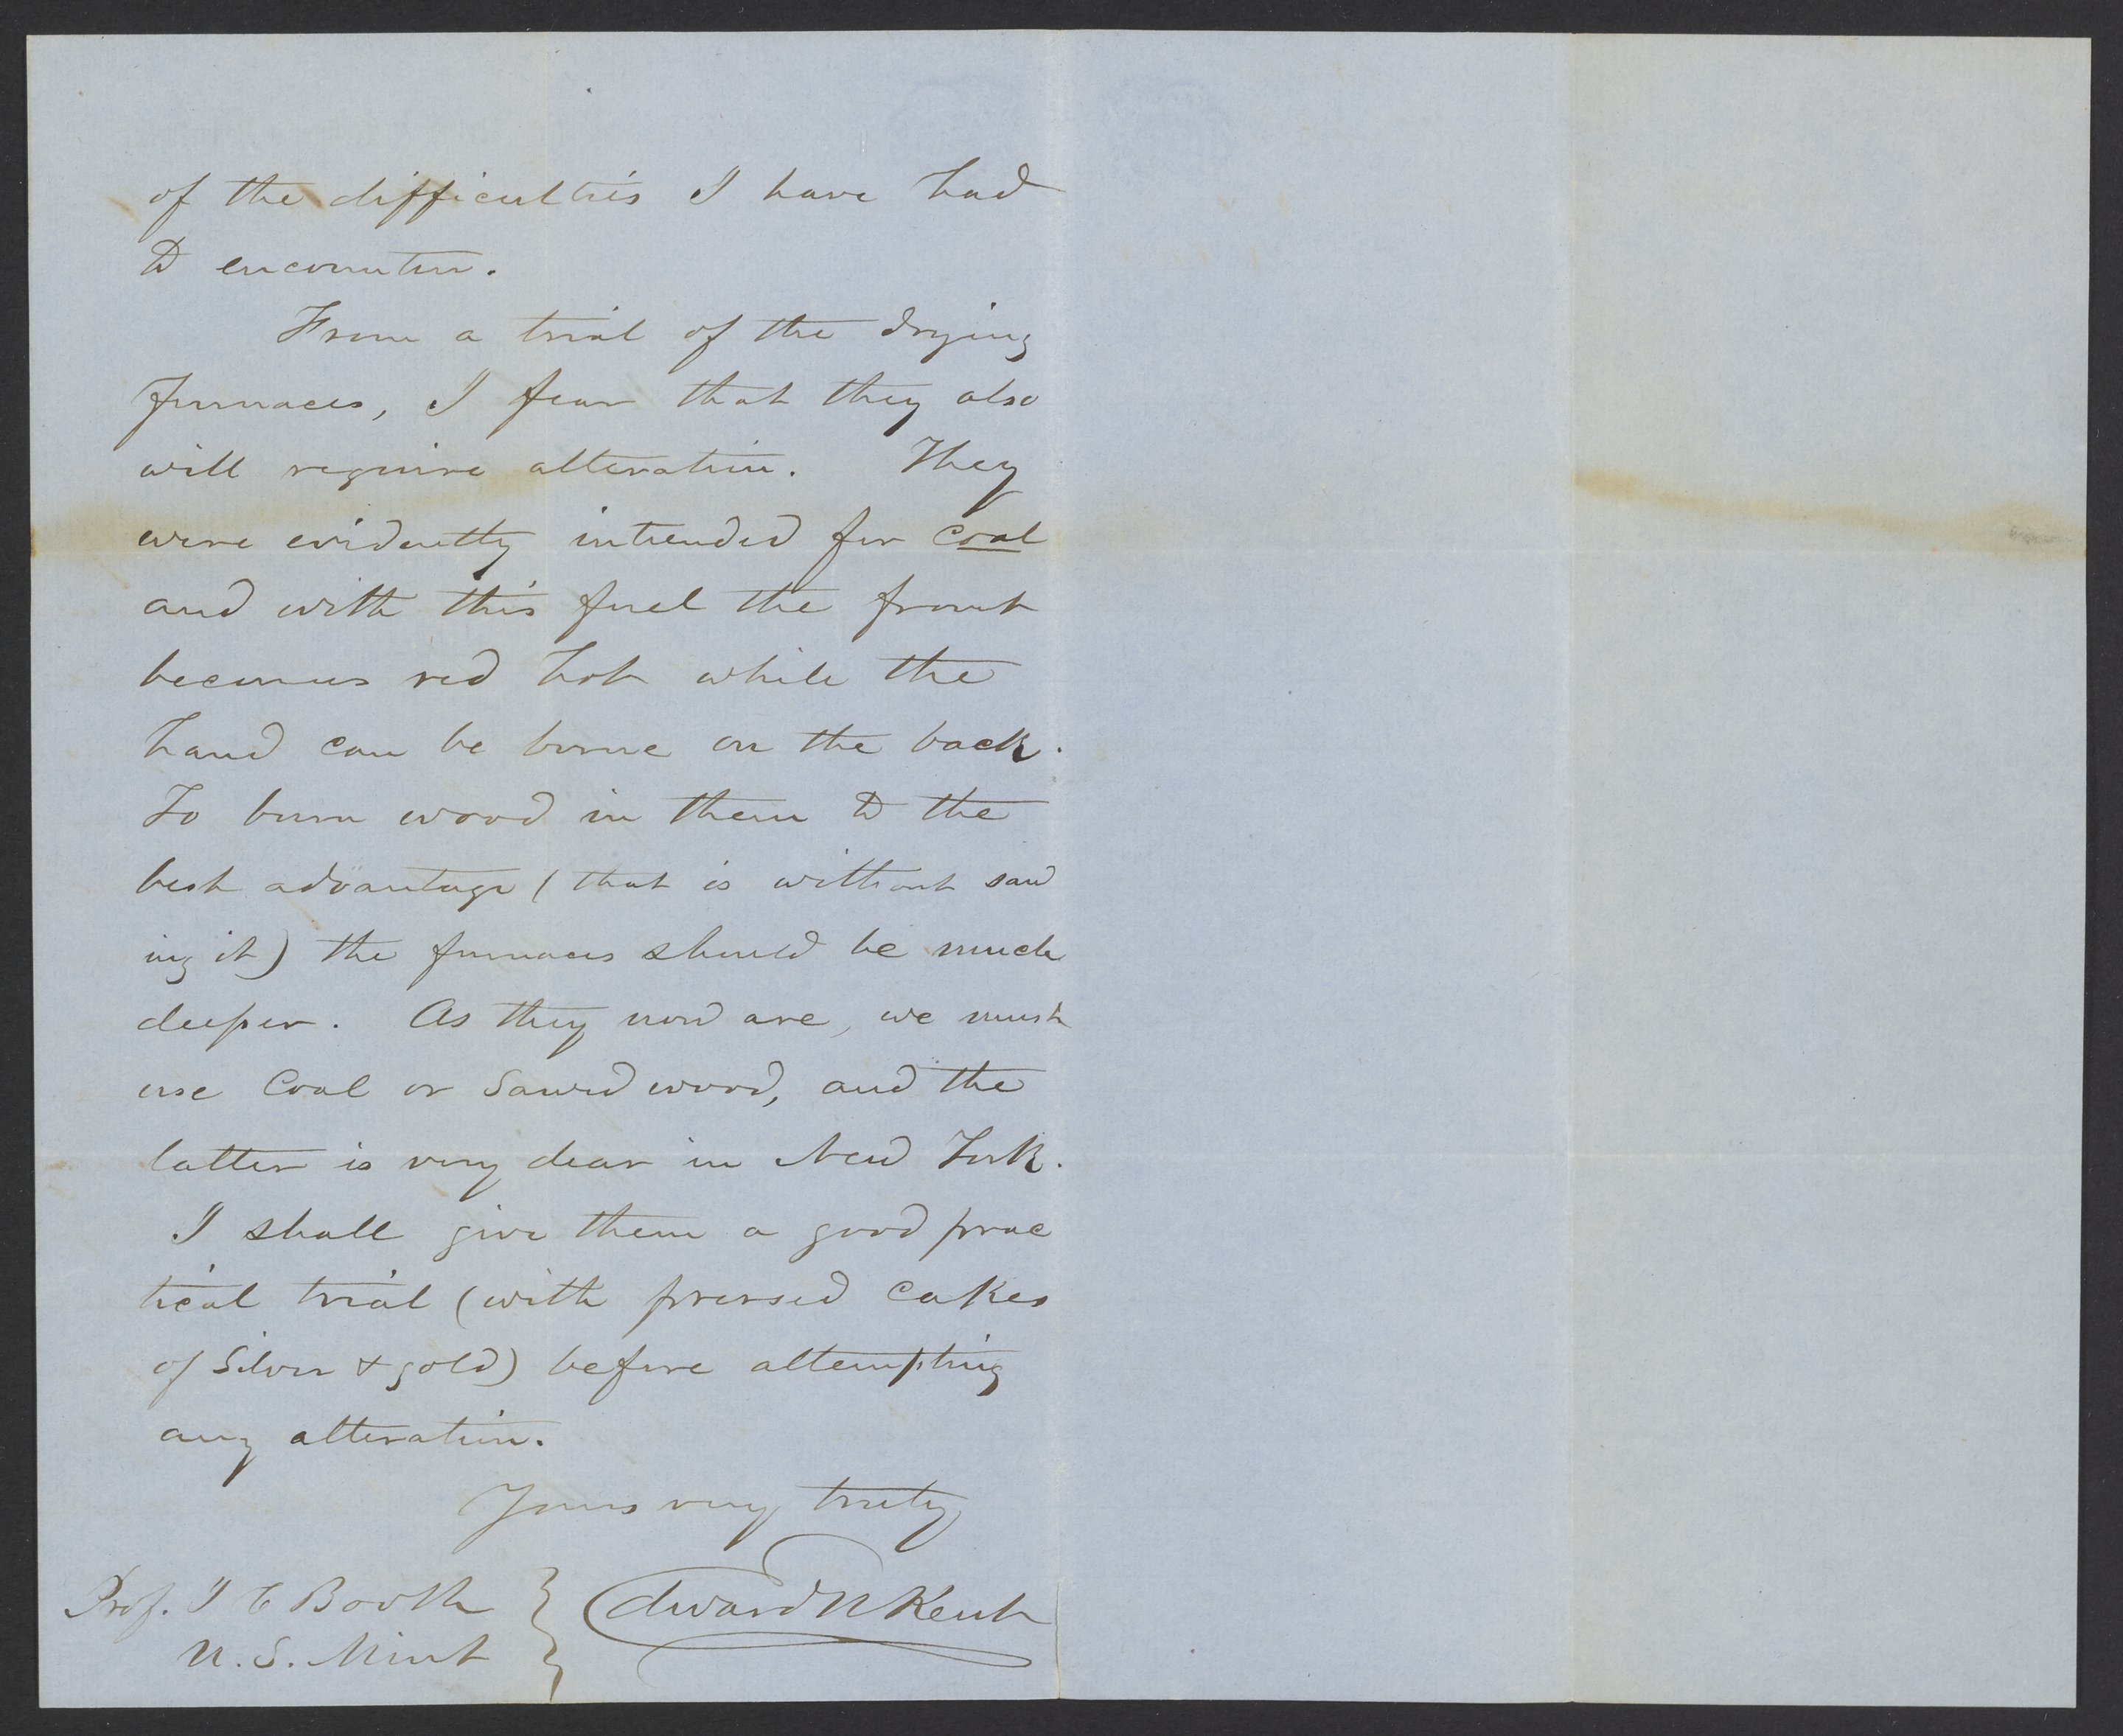 of the difficulties I have had
to encounter.
From a trial of the drying
furnaces, I fear that they also
will require alteration. They
were evidently intended for coal
and with this fuel the front
becomes red hot while the
hand can be borne on the back.
To burn wood in them to the
best advantage (that is without saw
ing it) the furnaces should be much
deeper. As they now are, we must
use Coal or Sawed wood, and the
latter is very dear in New York.
I shall give them a good prac
tical trial (with pressed cakes
of Silver & gold) before attempting
any alteration.
Yours very truly
Edward N Kent
Prof. J C Booth
U.S. Mint